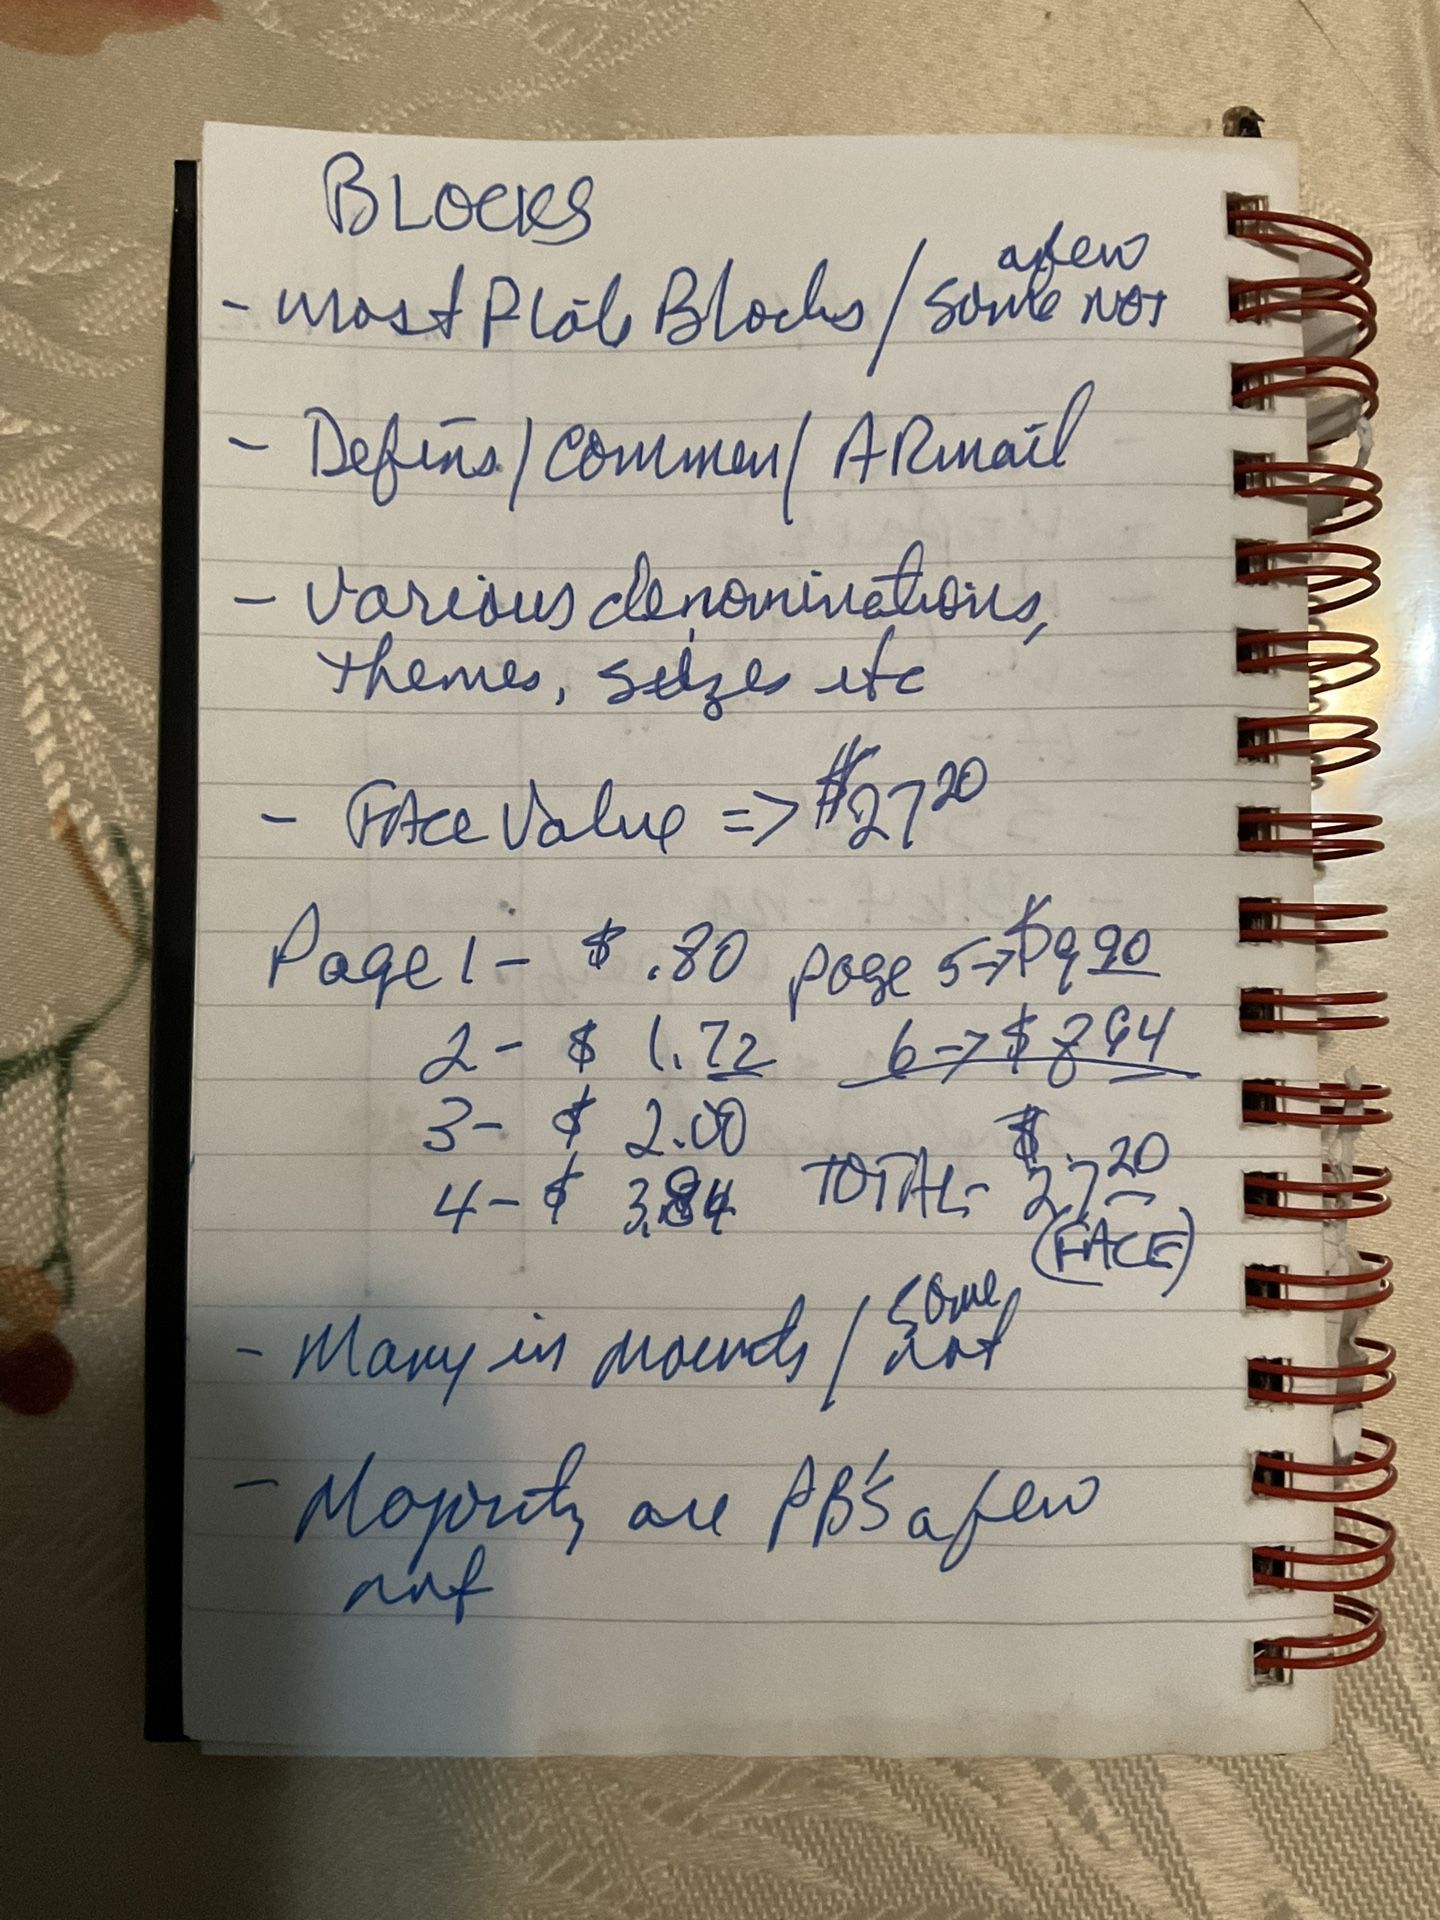 BLOCKS
a few
- Most Plate Blocks / some NOT
- Defins / Commem / AIRmail
- Various denominations,
themes, sizes etc
- FAce Value => $27 20
Page 1 - $ .80 page 5 -> $9 90
2 - $ 1.72 6 -> $ 8 94
3 - $ 2.00
4 - $ 3.84 TOTAL - $ 27 20
(FACE)
some
- Many in mounts / not
- Majority are PB's a few
not